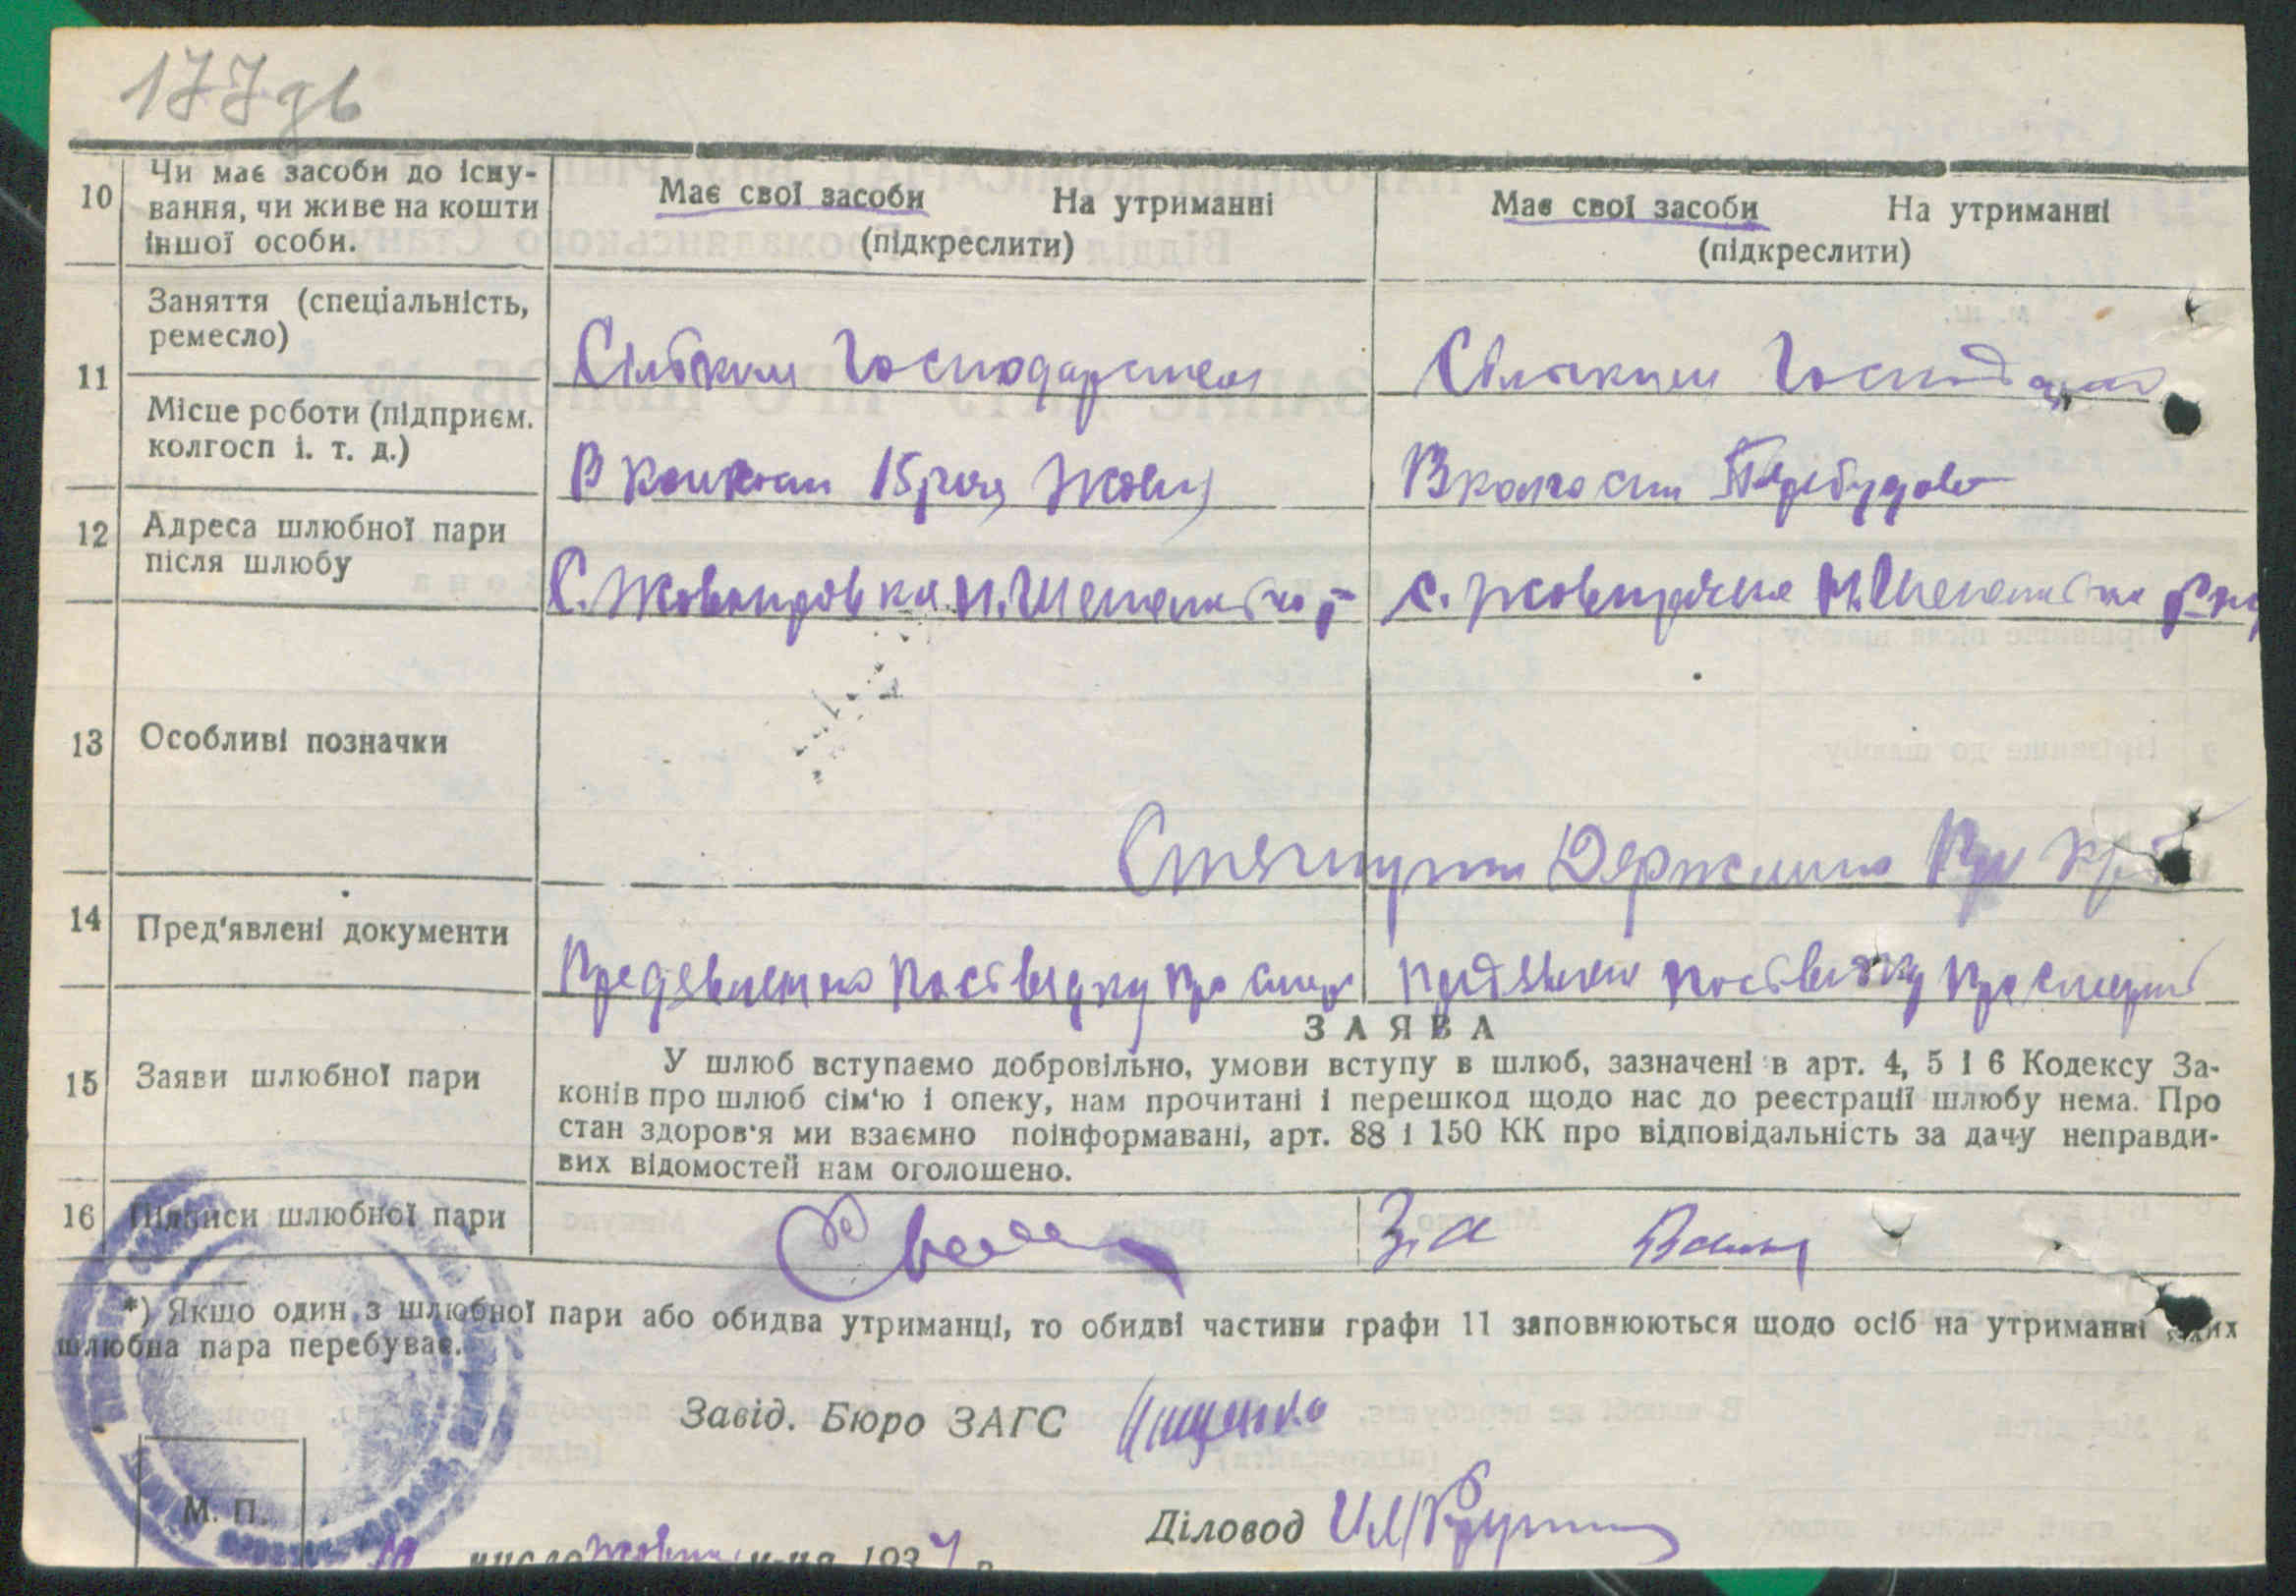 177 зв
10 Чи має засоби до існу-
вання, чи живе на кошти
іншої особи.
Має свої засоби На утриманні
(підкреслити)
Має свої засоби На утриманні
(підкреслити)
11 Заняття (спеціальність,
ремесло)
Сільським Господарством
Сільським
Місце роботи (підприєм.
колгосп і. т. д.)
В колгоспі 15 річчя Жовтня
В колгоспі Перебудова
12 Адреса шлюбної пари
після шлюбу
С. Жовтировка
с.
13 Особливі позначки
14 Пред'явлені документи
Предявлено посвідку про
Предявлено посвідку про
ЗАЯВА
15 Заяви шлюбної пари
У шлюб вступаємо добровільно, умови вступу в шлюб, зазначені в арт. 4, 5 і 6 Кодексу За-
конів про шлюб сім'ю і опеку, нам прочитані і перешкод щодо нас до реєстрації шлюбу нема. Про
стан здоров'я ми взаємно поінформавані, арт. 88 і 150 КК про відповідальність за дачу неправди-
вих відомостей нам оголошено.
16 Підписи шлюбної пари
*) Якщо один з шлюбної пари або обидва утриманці, то обидві частини графи 11 заповнюються щодо осіб на утриманні яких
шлюбна пара перебуває.
Завід. Бюро ЗАГС
Діловод
М. П.
число 1937 р